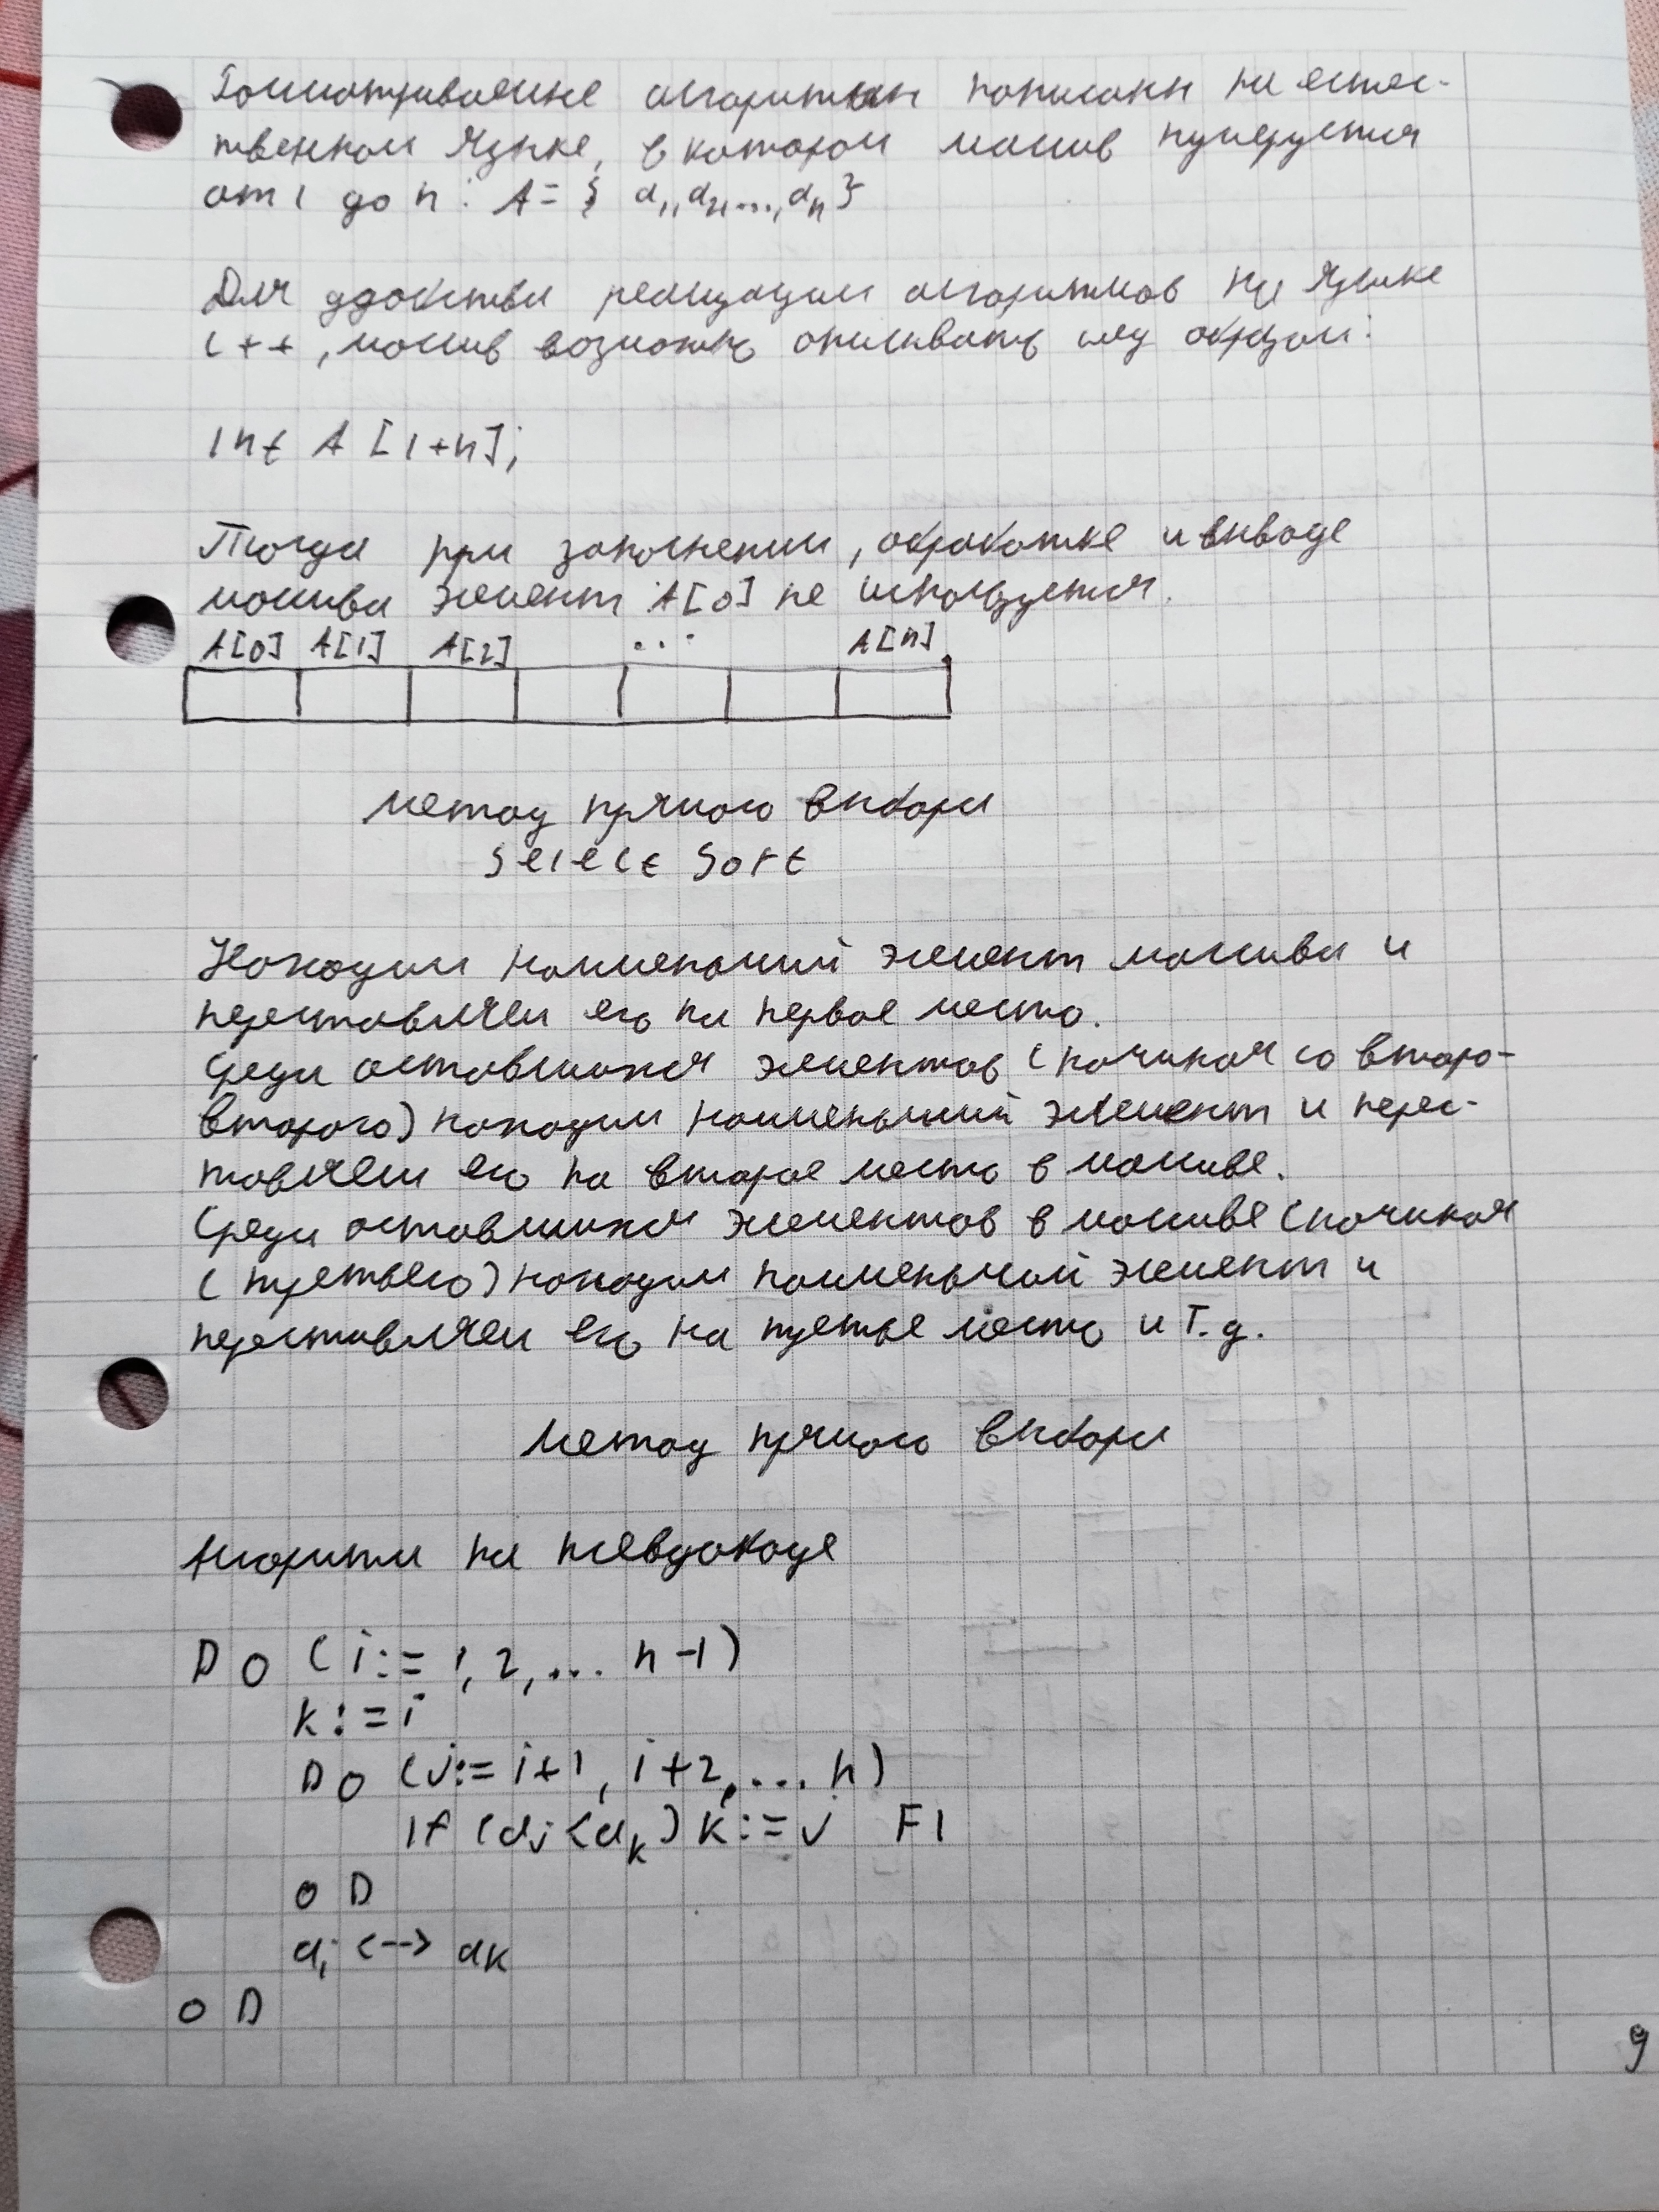 Рассматриваемые алгоритмы написаны на естес-
твенном языке, в котором массив нумеруется
от 1 до n: A = { a1, a2, ..., an }
Для удобства реализации алгоритмов на языке
C++, массив возможно описывать след образом:
int A [1+n];
Тогда при заполнении, обработке и выводе
массива элемент A[0] не используется.
A[0] A[1] A[2] ... A[n]
метод прямого выбора
Select Sort
Находим наименьший элемент массива и
переставляем его на первое место.
Среди оставшихся элементов (начиная со второ-
второго) находим наименьший элемент и перес-
тавляем его на второе место в массиве.
Среди оставшихся элементов в массиве (начиная
с третьего) находим наименьший элемент и
переставляем его на третье место и т.д.
метод прямого выбора
Алгоритм на псевдокоде
DO (i:= 1, 2, ... n-1)
k:=i
DO (j:= i+1, i+2, ... n)
IF (aj < ak) k:=j FI
OD
ai <--> ak
OD
9